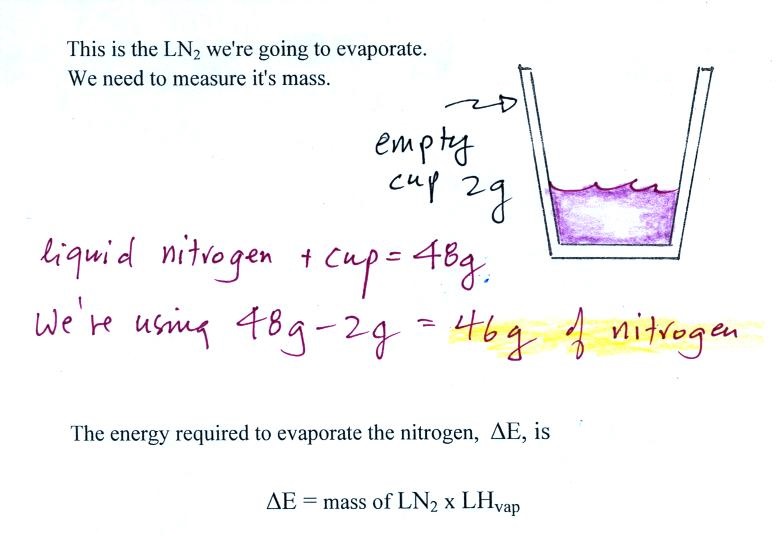 This is the LN₂ we're going to evaporate.
We need to measure it's mass.
empty
cup 2g
liquid nitrogen + cup = 48g.
We're using 48g - 2g = 46g of nitrogen
The energy required to evaporate the nitrogen, ΔE, is
ΔE = mass of LN₂ x LHvap